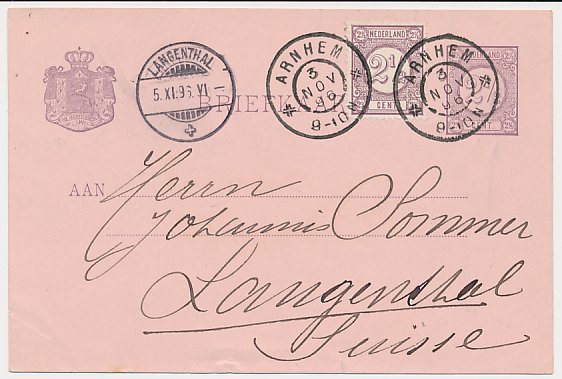 LANGENTHAL
5.XI.96.VI
ARNHEM
3
NOV
96
9-10N
NEDERLAND
2½
CENT
ARNHEM
3
NOV
96
9-10N
2½
CENT.
BRIEFK
AAN
Herrn
Johannis Sommer
Langenthal
Suisse